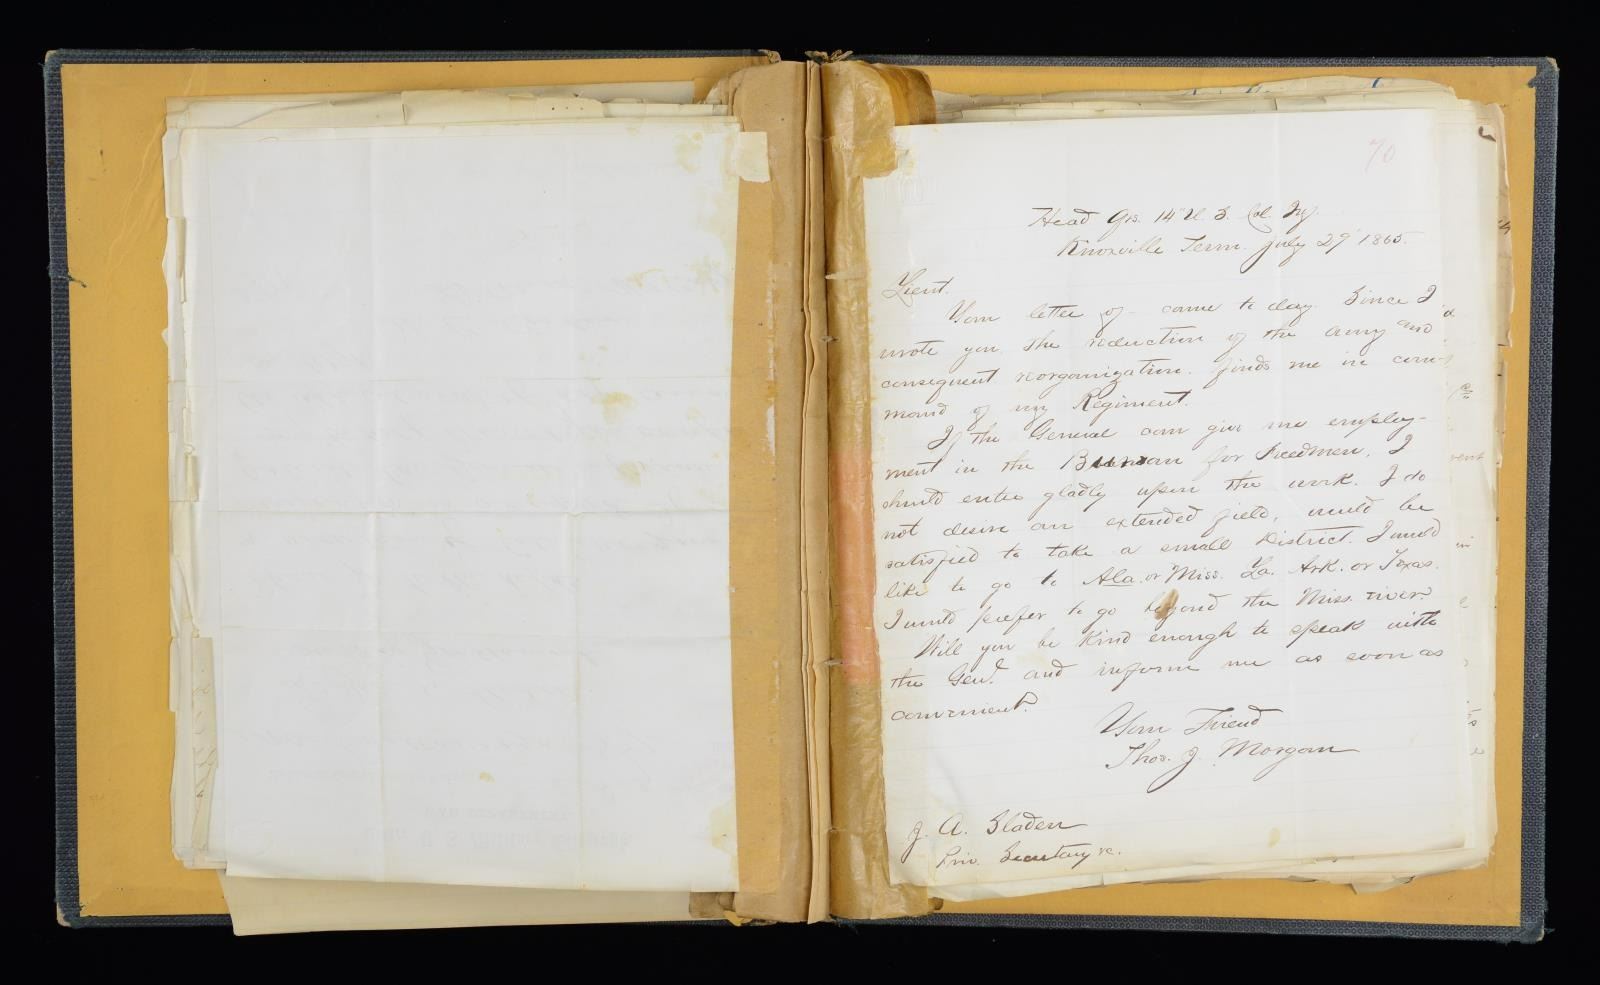 70
Head Qrs. 14" U. S. Col. Inf.
Knoxville Tenn. July 29" 1865.
Lieut.
Your letter of - came to day. Since I
wrote you the reduction of the army and
consequent reorganization finds me in com-
mand of my Regiment.
If the General can give me employ-
ment in the Bureau for Freedmen, I
should enter gladly upon the work. I do
not desire an extended field, would be
satisfied to take a small District. I would
like to go to Ala. or Miss. La. Ark. or Texas.
I would prefer to go beyond the Miss. river.
Will you be kind enough to speak with
the Genl. and inform me as soon as
convenient.
Your Friend
Thos. J. Morgan
J. A. Sladen
Priv. Secretary &c.